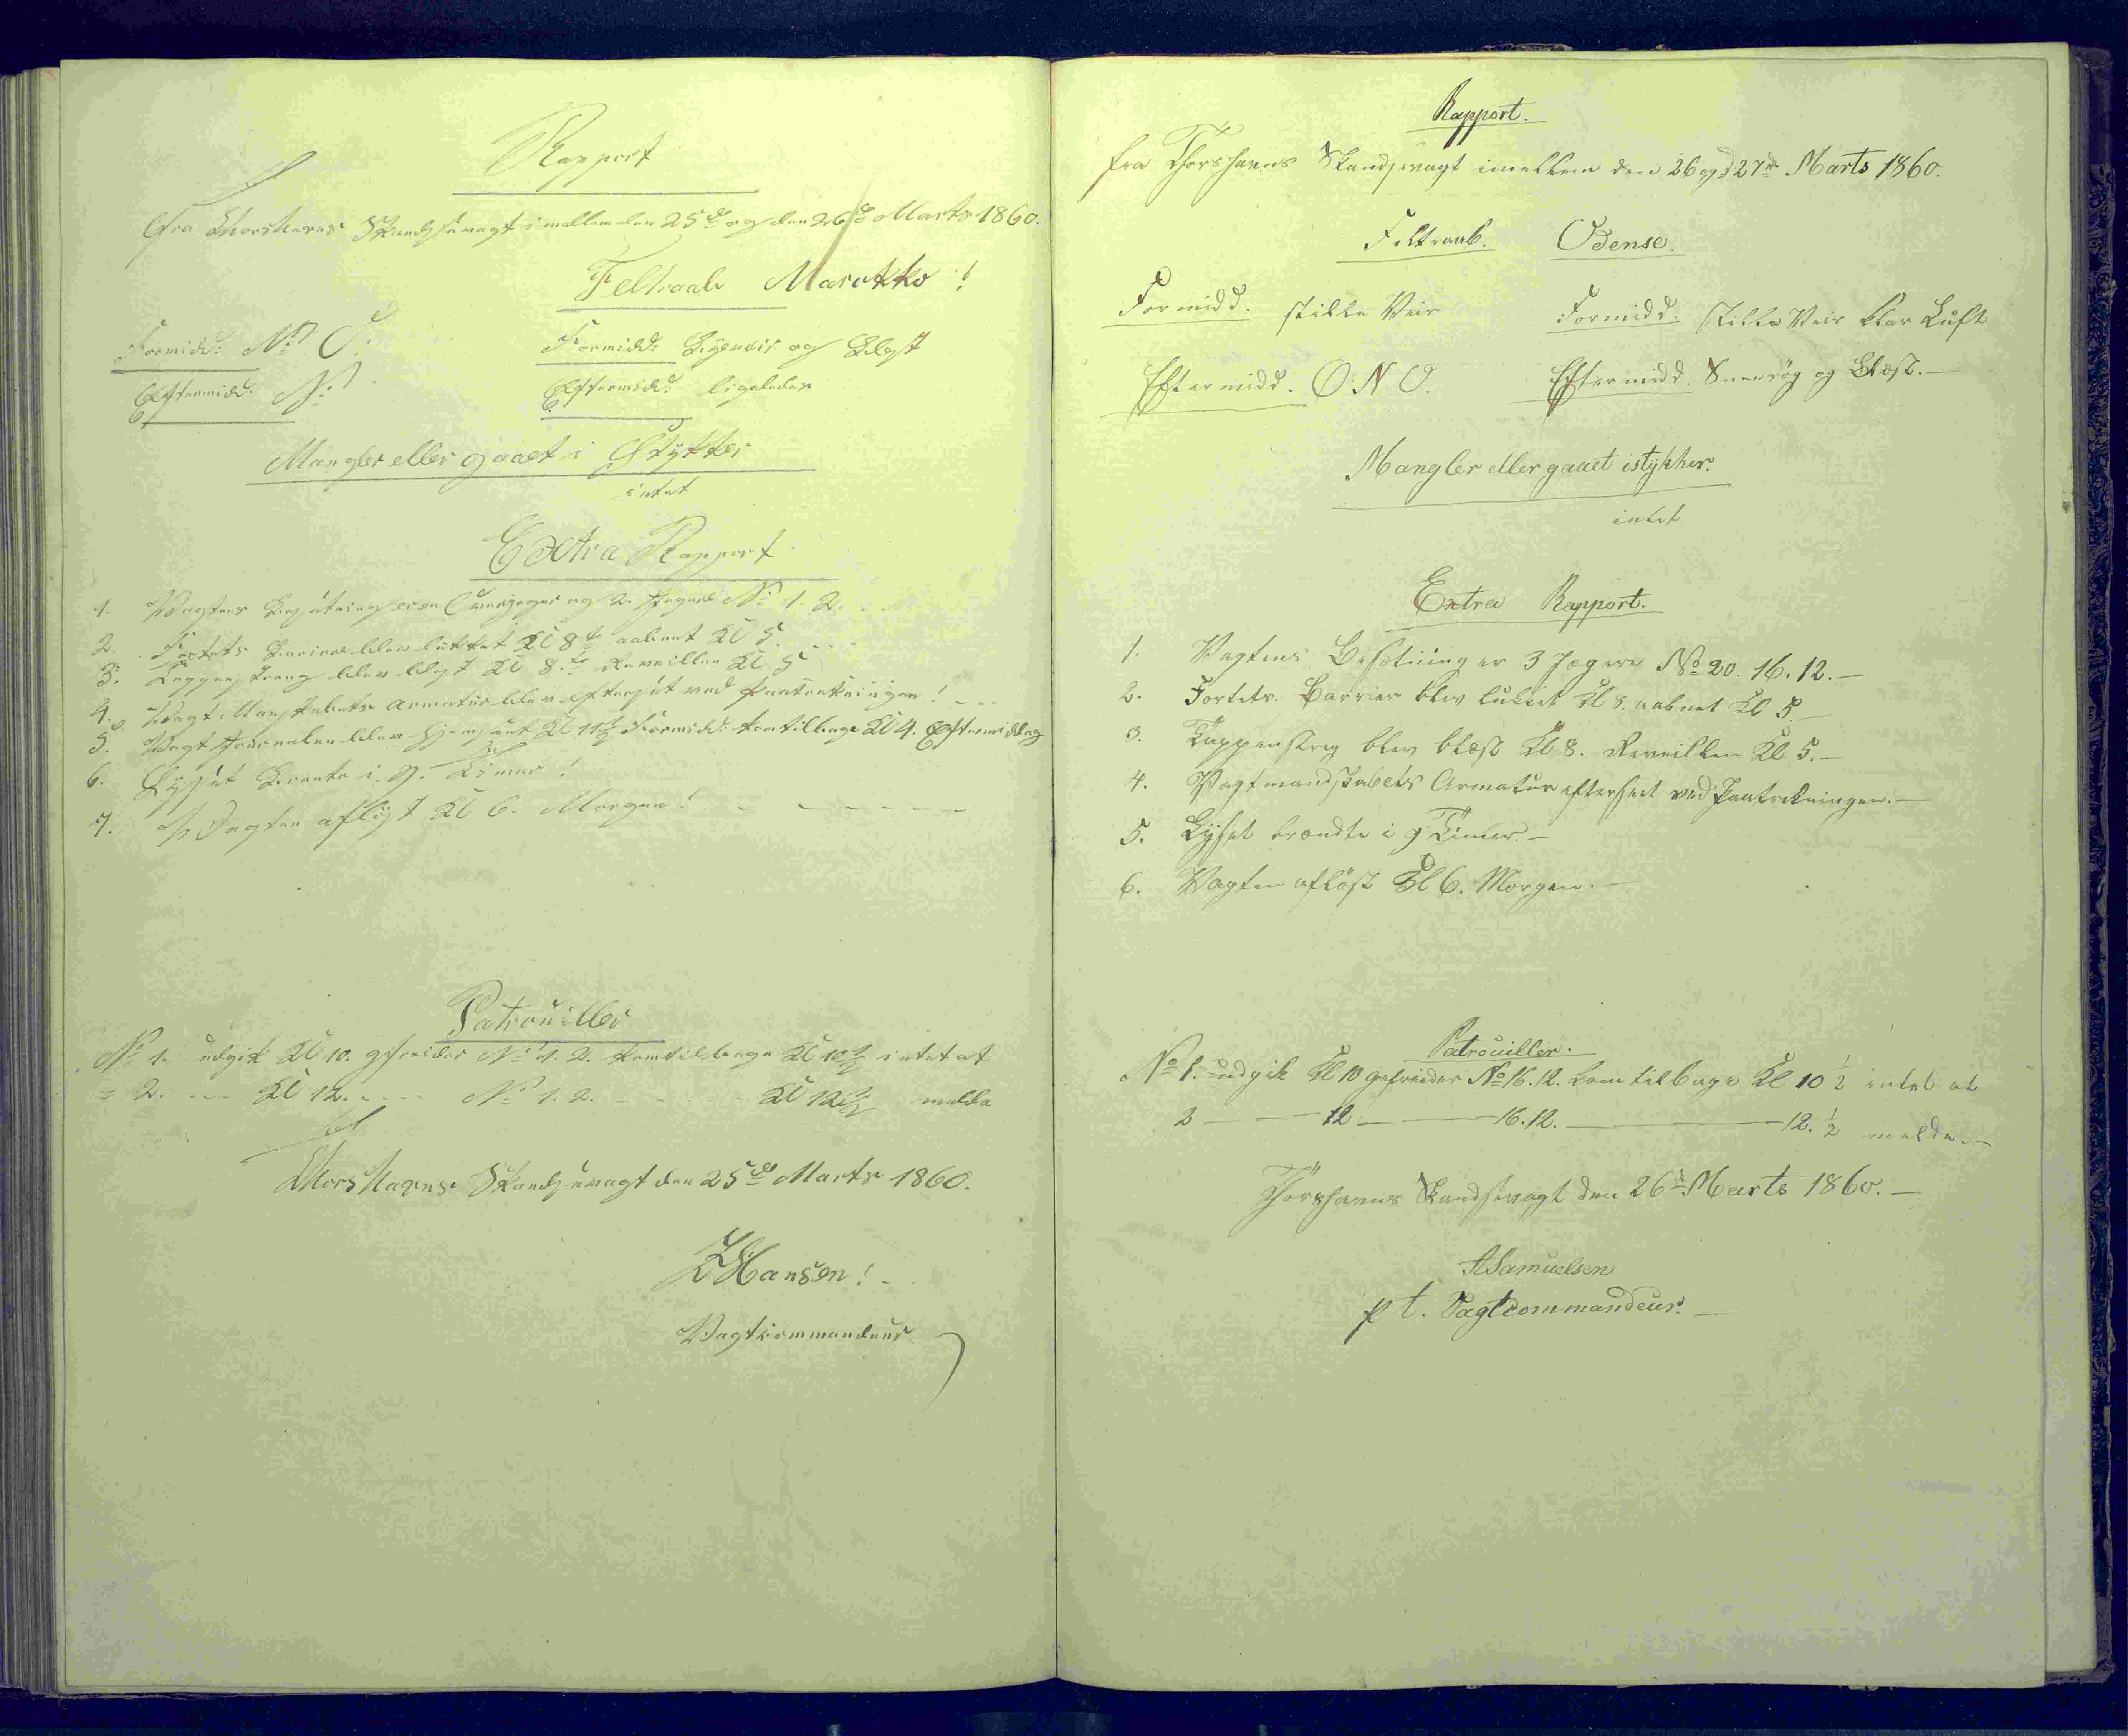 Rapport
Fra Thorshavns Skandsevagt imellem den 25de og den 26de Marts 1860.
Feltraab Marokko!
Formidd: N: O: Formidd: Bygeveir og Blæst
Eftermidd: N: Eftermidd: ligeledes
Mangler eller gaaet i Stykker
intet
Extra Rapport
1. Vagtens Besætning er en Overjæger og 2. Jægere No 1. 2.
2. Fortets Barriere blev lukket Kl 8te aabnet Kl 5.
3. Tappenstreg blev blæst Kl 8.te Reveillen Kl 5
4. Vagt Mandskabets Armatur blev efterseet ved Paatrækningen!
5. Vagt Journalen blev hjemsendt Kl 11½ Formidd: kom tilbage Kl 4. Eftermiddag
6. Lyset brændte i 9. Timer!
7. Vagten afløst Kl 6. Morgen!
Patrouiller
No 1. udgik Kl 10. gefreider No 1. 2. kom tilbage Kl 10½ intet at
= 2. Kl 12. No 1. 2. Kl 12½ melde
Thorshavns Skandsevagt den 25de Marts 1860.
Hansen!
Vagtcommandeur
Rapport.
fra Thorshavns Skandsevagt imellem den 26 og 27de Marts 1860.
Feltraab. Odense.
Formidd. stille Veir Formidd. stille Veir klar Luft
Eftermidd. O.N.O. Eftermidd. Sneerög og Blæst.—
Mangler eller gaaet istykker.
intet
Extra Rapport.
1. Vagtens Besætning er 3 Jægere No 20. 16. 12.—
2. Fortets. Barrier blev lukket Kl 8. aabnet Kl 5.—
3. Tappenstreg blev blæst Kl 8. Reveillen Kl 5.—
4. Vagtmandskabets Armatur efterseet ved Paatrækningen.—
5. Lyset brændte i 9 Timer.—
6. Vagten aflöst Kl 6. Morgen.—
Patrouiller.
No 1. udgik Kl 10 gefreider No 16. 12. kom tilbage Kl 10½ intet at
2 — 12 — 16. 12. — 12.½ melde.—
Thorshavns Skandsevagt den 26de Marts 1860.—
ASamuelsen
pt. Vagtcommandeur.—